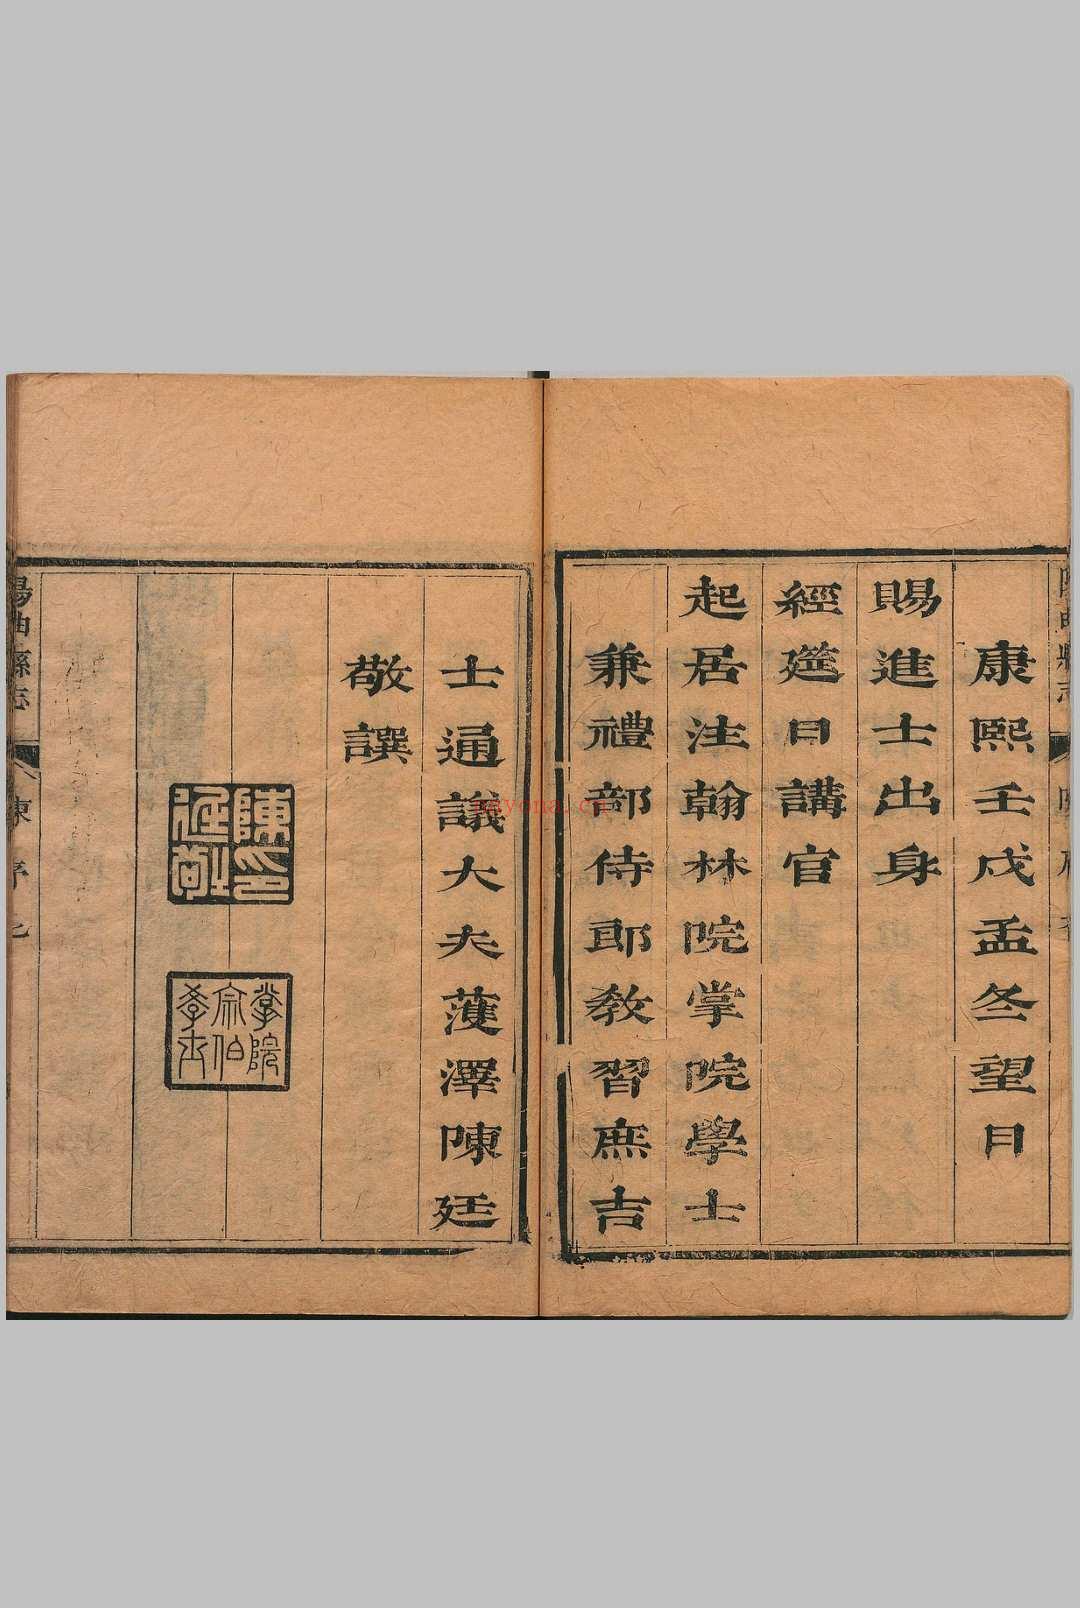 康熙壬戌孟冬望日
賜進士出身
經筵日講官
起居注翰林院掌院學士
兼禮部侍郎敎習庶吉
士通議大夫濩澤陳廷
敬譔
陳廷敬印
掌院宗伯學士
陽曲縣志
陳序